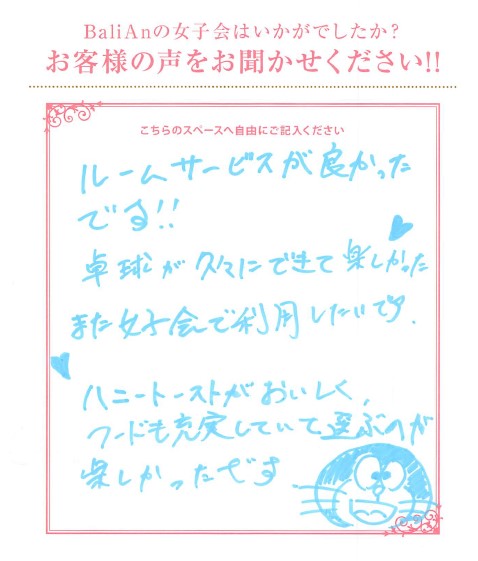 BaliAnの女子会はいかがでしたか?
お客様の声をお聞かせください!!
こちらのスペースへ自由にご記入ください
ルームサービスが良かった
です!!
卓球が久々にできて楽しかった
また女子会で利用したいです.
ハニートーストがおいしく,
フードも充実していて選ぶのが
楽しかったです